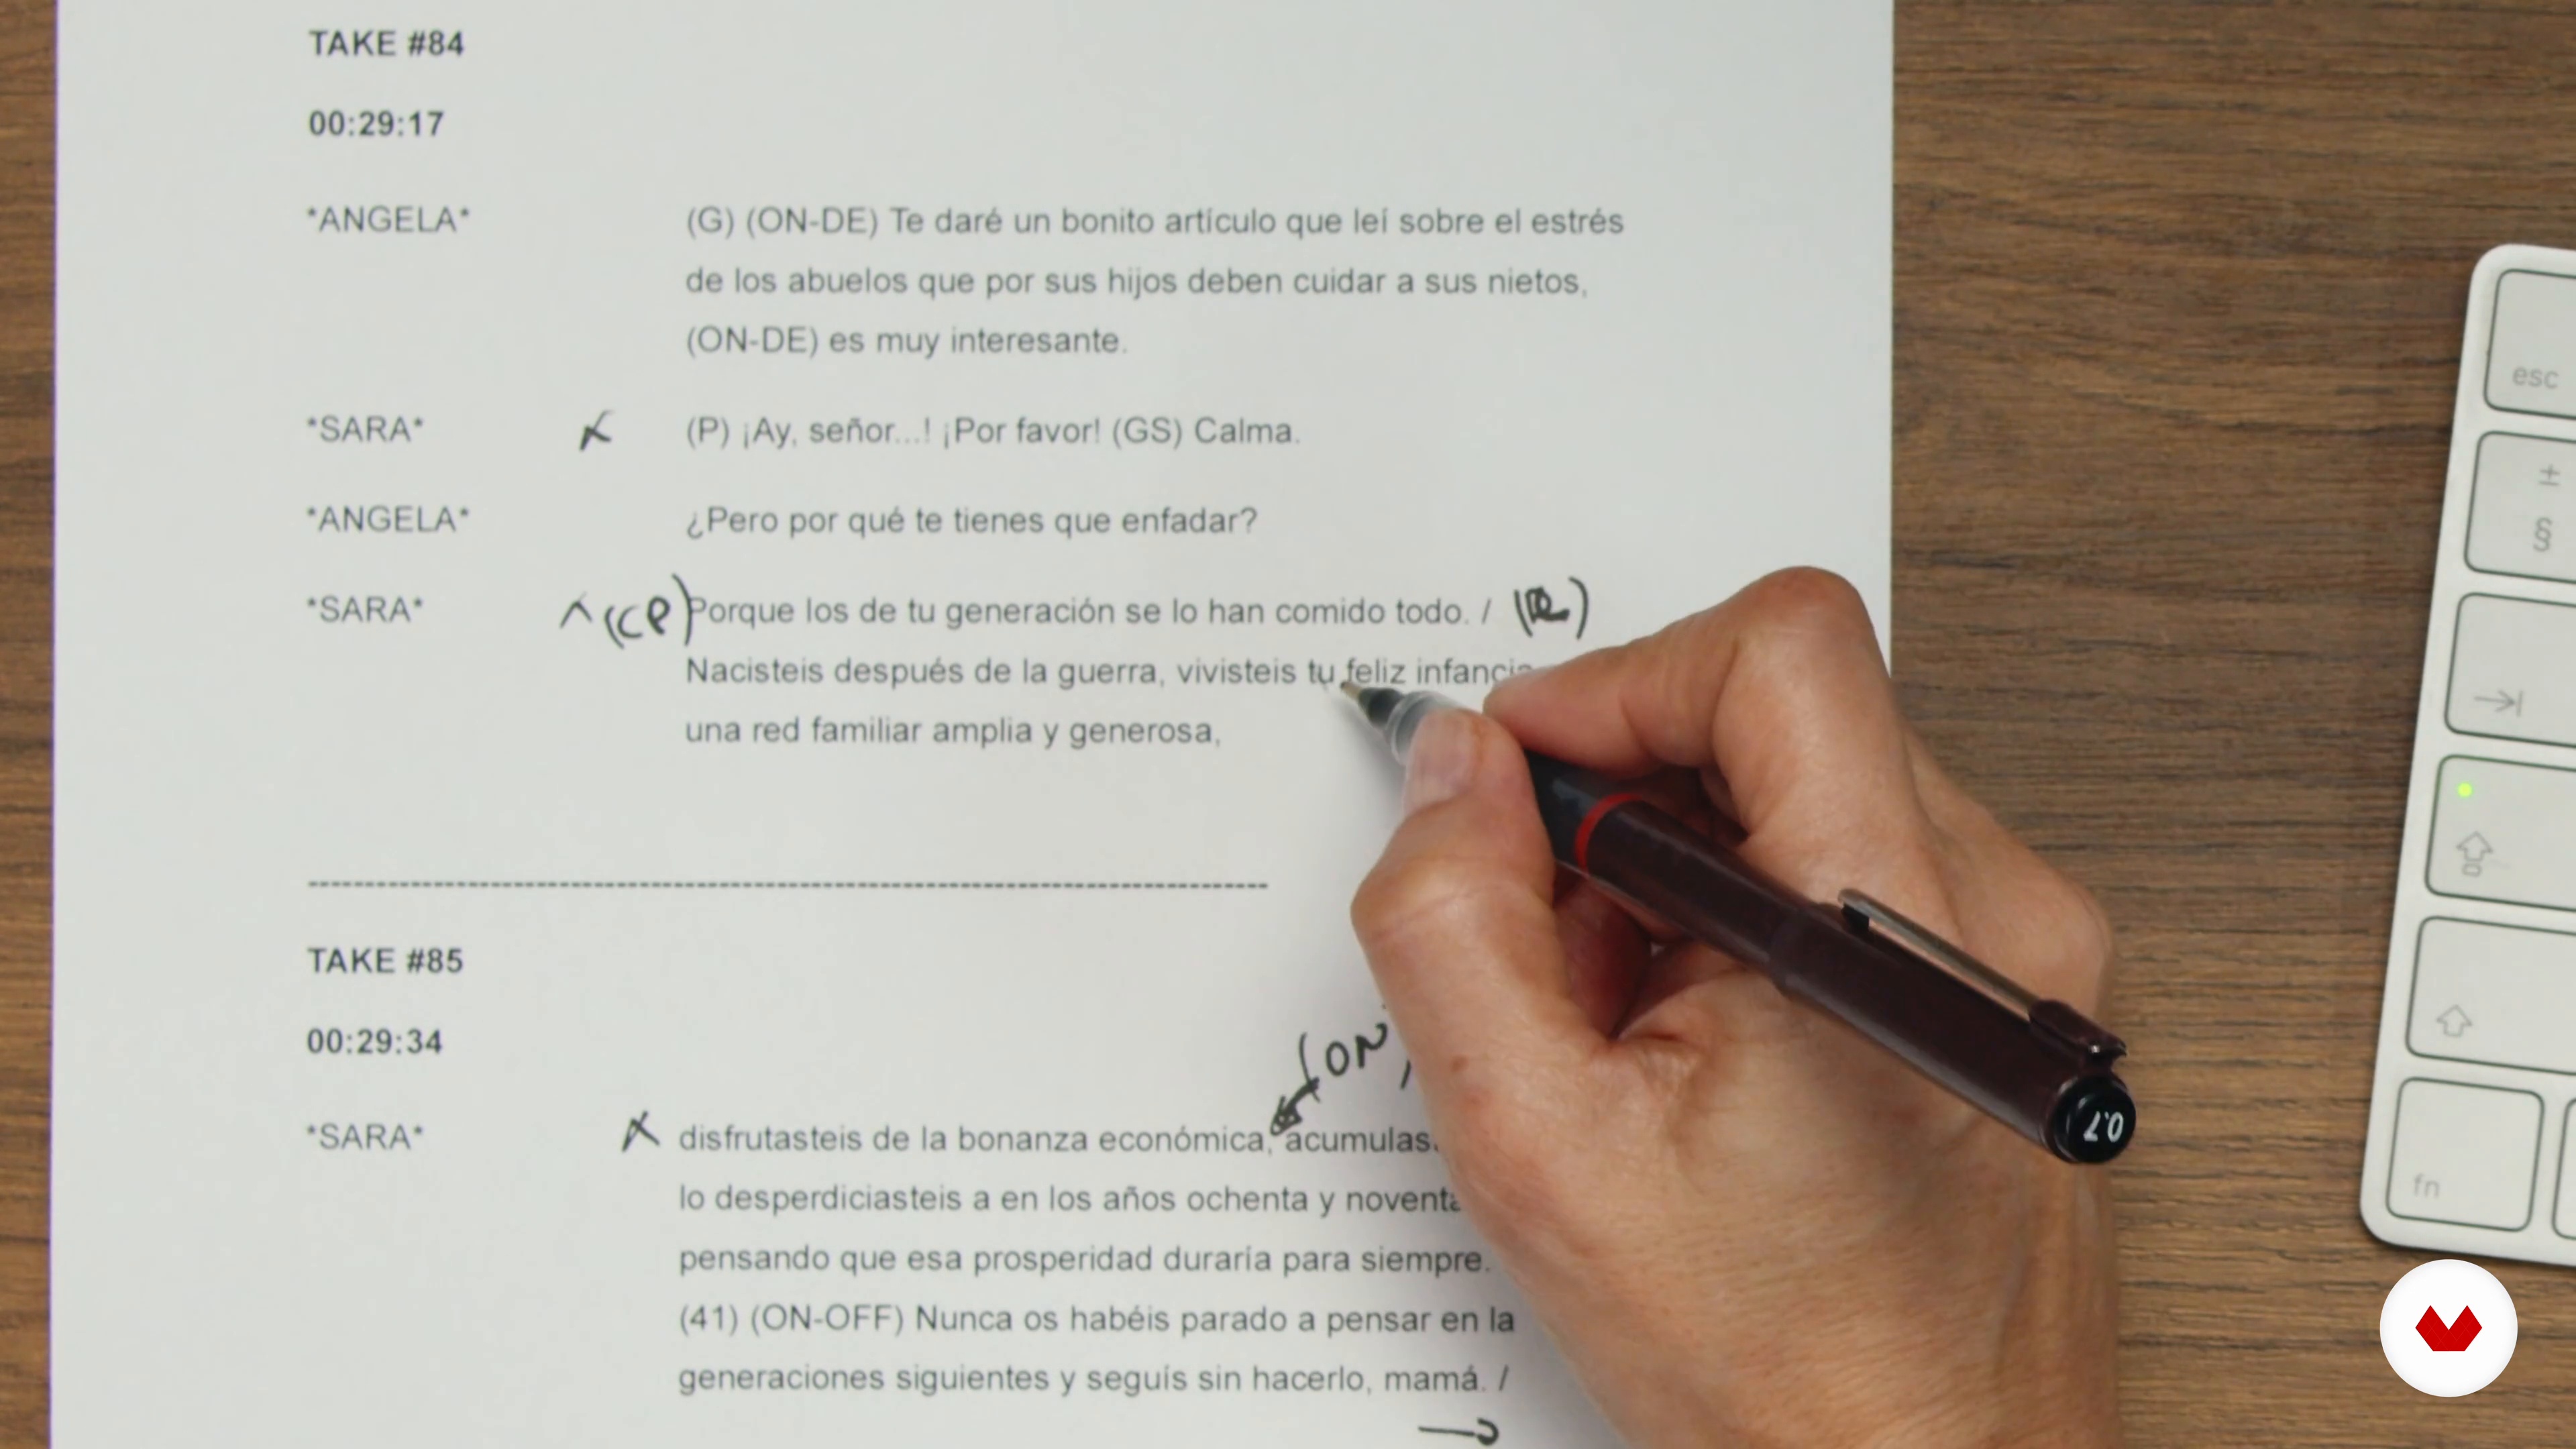 TAKE #84
00:29:17
*ANGELA* (G) (ON-DE) Te daré un bonito artículo que leí sobre el estrés
de los abuelos que por sus hijos deben cuidar a sus nietos,
(ON-DE) es muy interesante.
*SARA* (P) ¡Ay, señor...! ¡Por favor! (GS) Calma.
*ANGELA* ¿Pero por qué te tienes que enfadar?
*SARA* (CP) Porque los de tu generación se lo han comido todo. / (R)
Nacisteis después de la guerra, vivisteis tu feliz
una red familiar amplia y generosa,
TAKE #85
00:29:34
(ON
*SARA* disfrutasteis de la bonanza económica,
lo desperdiciasteis a en los años ochenta y
pensando que esa prosperidad duraría para siempre.
(41) (ON-OFF) Nunca os habéis parado a pensar en la
generaciones siguientes y seguís sin hacerlo, mamá. /
esc
±
§
fn
0.7